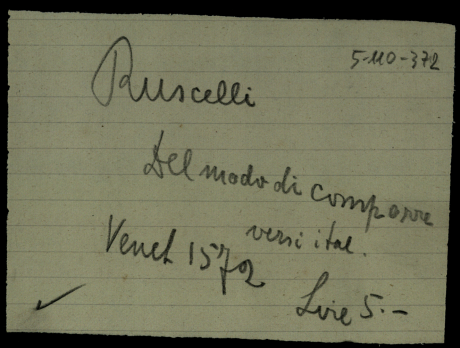 5-110-372
Ruscelli
Del modo di comporre
versi ital.
Venet 1572
Lire 5.-